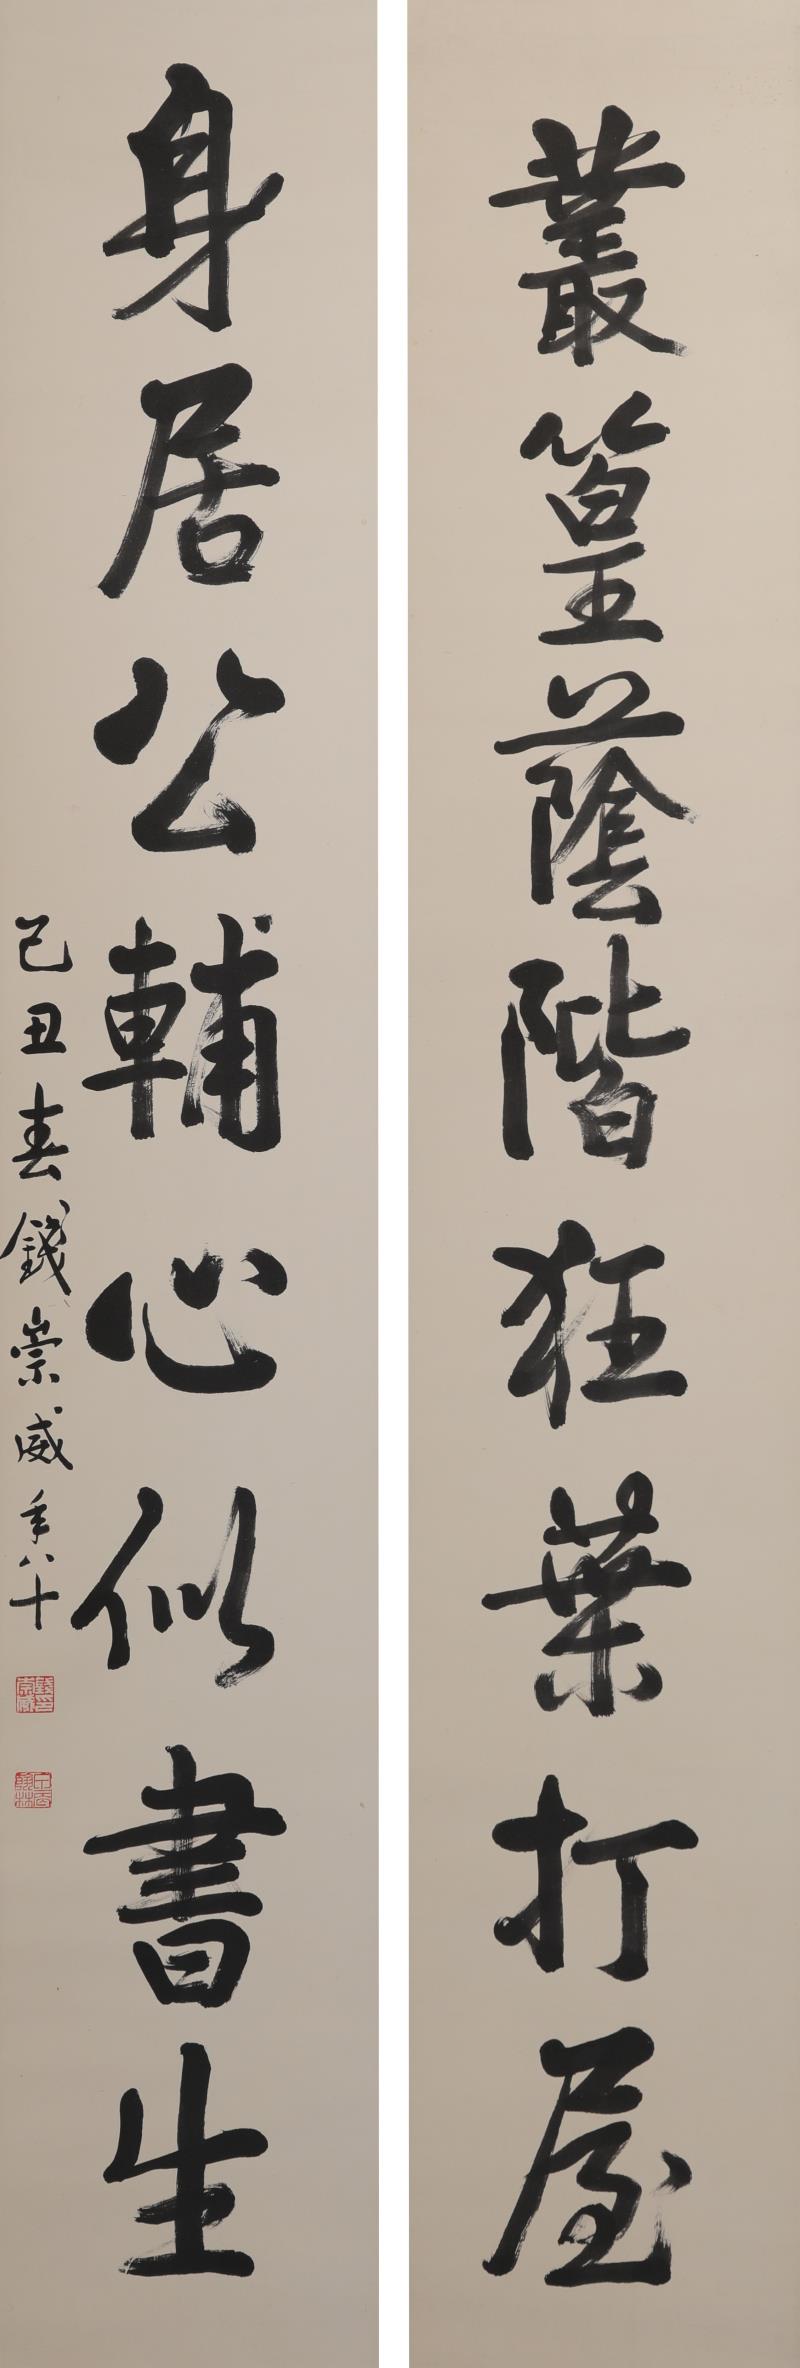 叢篁蔭階狂葉打屋
身居公輔心似書生
己丑春錢崇威年八十